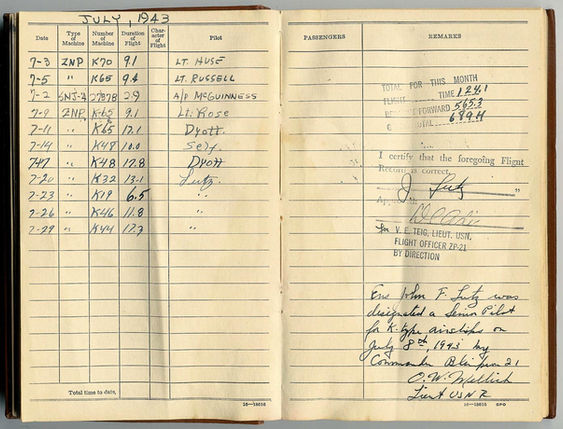 JULY, 1943
Date Type of Machine Number of Machine Duration of Flight Character of Flight Pilot
7-3 ZNP K70 9.1 LT. HUSE
7-5 " K65 9.4 LT. RUSSELL
7-2 SNJ-4 27378 2.9 A/P McGUINNESS
7-9 ZNP K-65 9.1 Lt. Rose
7-11 " K65 17.1 Dyott.
7-14 " K48 10.0 Self.
7-17 " K48 17.8 Dyott
7-20 " K32 13.1 Lutz.
7-23 " K19 6.5 "
7-26 " K46 11.8 "
7-29 " K44 17.3 "
Total time to date,
16—18618
PASSENGERS REMARKS
TOTAL FOR THIS MONTH
FLIGHT TIME 124.1
FORWARD 565.3
TOTAL 689.4
I certify that the foregoing Flight
Record is correct.
J Lutz "
for V. E. TEIG, LIEUT. USN,
FLIGHT OFFICER ZP-21
BY DIRECTION
Ens John F. Lutz was
designated a Senior Pilot
for K-type airships on
July 8th, 1943 by
Commander Blimpron 21
O. W. Mellich
Lieut USNR
16—18618 GPO